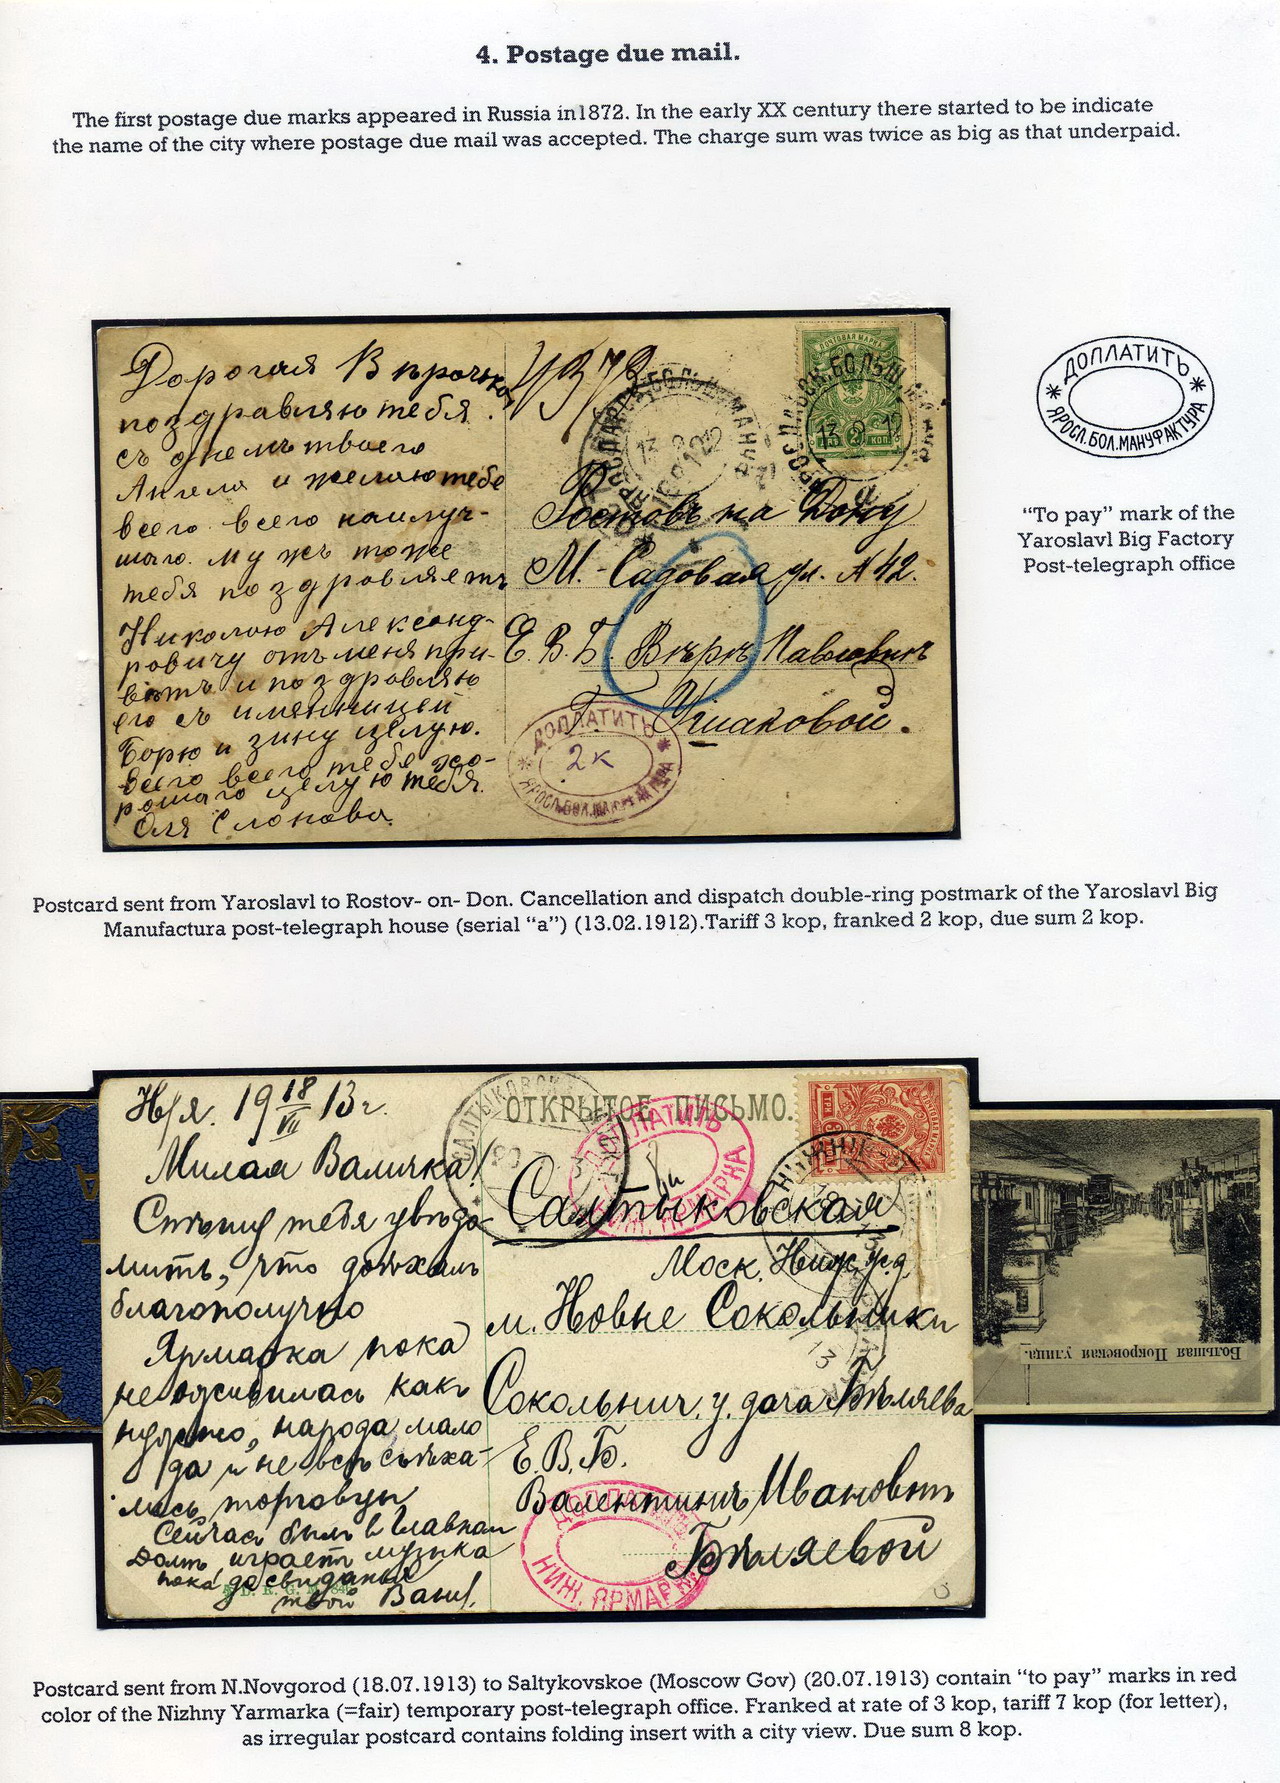 4. Postage due mail.
The first postage due marks appeared in Russia in1872. In the early XX century there started to be indicate
the name of the city where postage due mail was accepted. The charge sum was twice as big as that underpaid.
Дорогая Вѣрочка
поздравляю тебя
съ днемъ твоего
Ангела и желаю тебе
всего всего наилуч-
шаго. Мужъ тоже
тебя поздровляетъ
Николаю Александ-
ровичу отъ меня при-
вѣтъ и поздровляю
его съ имянницей
Борю и Зину целую.
всего всего тебе хо-
рошаго целую тебя.
Оля Слонова
ПОЧТОВАЯ МАРКА
2 КОП.
Ростовъ на Дону
М.-Садовая ул. № 42.
Е. В. Б. Вѣрѣ Павловнѣ
Г. Ушаковой.
ДОПЛАТИТЬ
2 к
ЯРОСЛ. БОЛ. МАНУФАКТУРА
ДОПЛАТИТЬ
ЯРОСЛ. БОЛ. МАНУФАКТУРА
“To pay” mark of the
Yaroslavl Big Factory
Post-telegraph office
Postcard sent from Yaroslavl to Rostov- on- Don. Cancellation and dispatch double-ring postmark of the Yaroslavl Big
Manufactura post-telegraph house (serial “a”) (13.02.1912).Tariff 3 kop, franked 2 kop, due sum 2 kop.
Н/Я. 19 18/VII 13 г.
Милая Валичка!
Спѣшу тебя увѣдо-
мить, что доѣхалъ
благополучно
Ярмарка пока
не оживилась какъ
нужно, народа мало
да и не всѣ съѣха-
лись торговцы
Сейчасъ былъ в Главном
домѣ играетъ музыка
пока до свиданья
твой Ваня.
ОТКРЫТОЕ ПИСЬМО.
ДОПЛАТИТЬ
НИЖ. ЯРМАРКА
Салтыковская
Моск. Ниж. ж.д.
м. Новые Сокольники
Сокольнич. у. дача Бѣляева
Е. В. Б.
Валентинѣ Ивановнѣ
Бѣляевой
ДОПЛАТИТЬ
НИЖ. ЯРМАРКА
Большая Покровская улица.
Postcard sent from N.Novgorod (18.07.1913) to Saltykovskoe (Moscow Gov) (20.07.1913) contain “to pay” marks in red
color of the Nizhny Yarmarka (=fair) temporary post-telegraph office. Franked at rate of 3 kop, tariff 7 kop (for letter),
as irregular postcard contains folding insert with a city view. Due sum 8 kop.